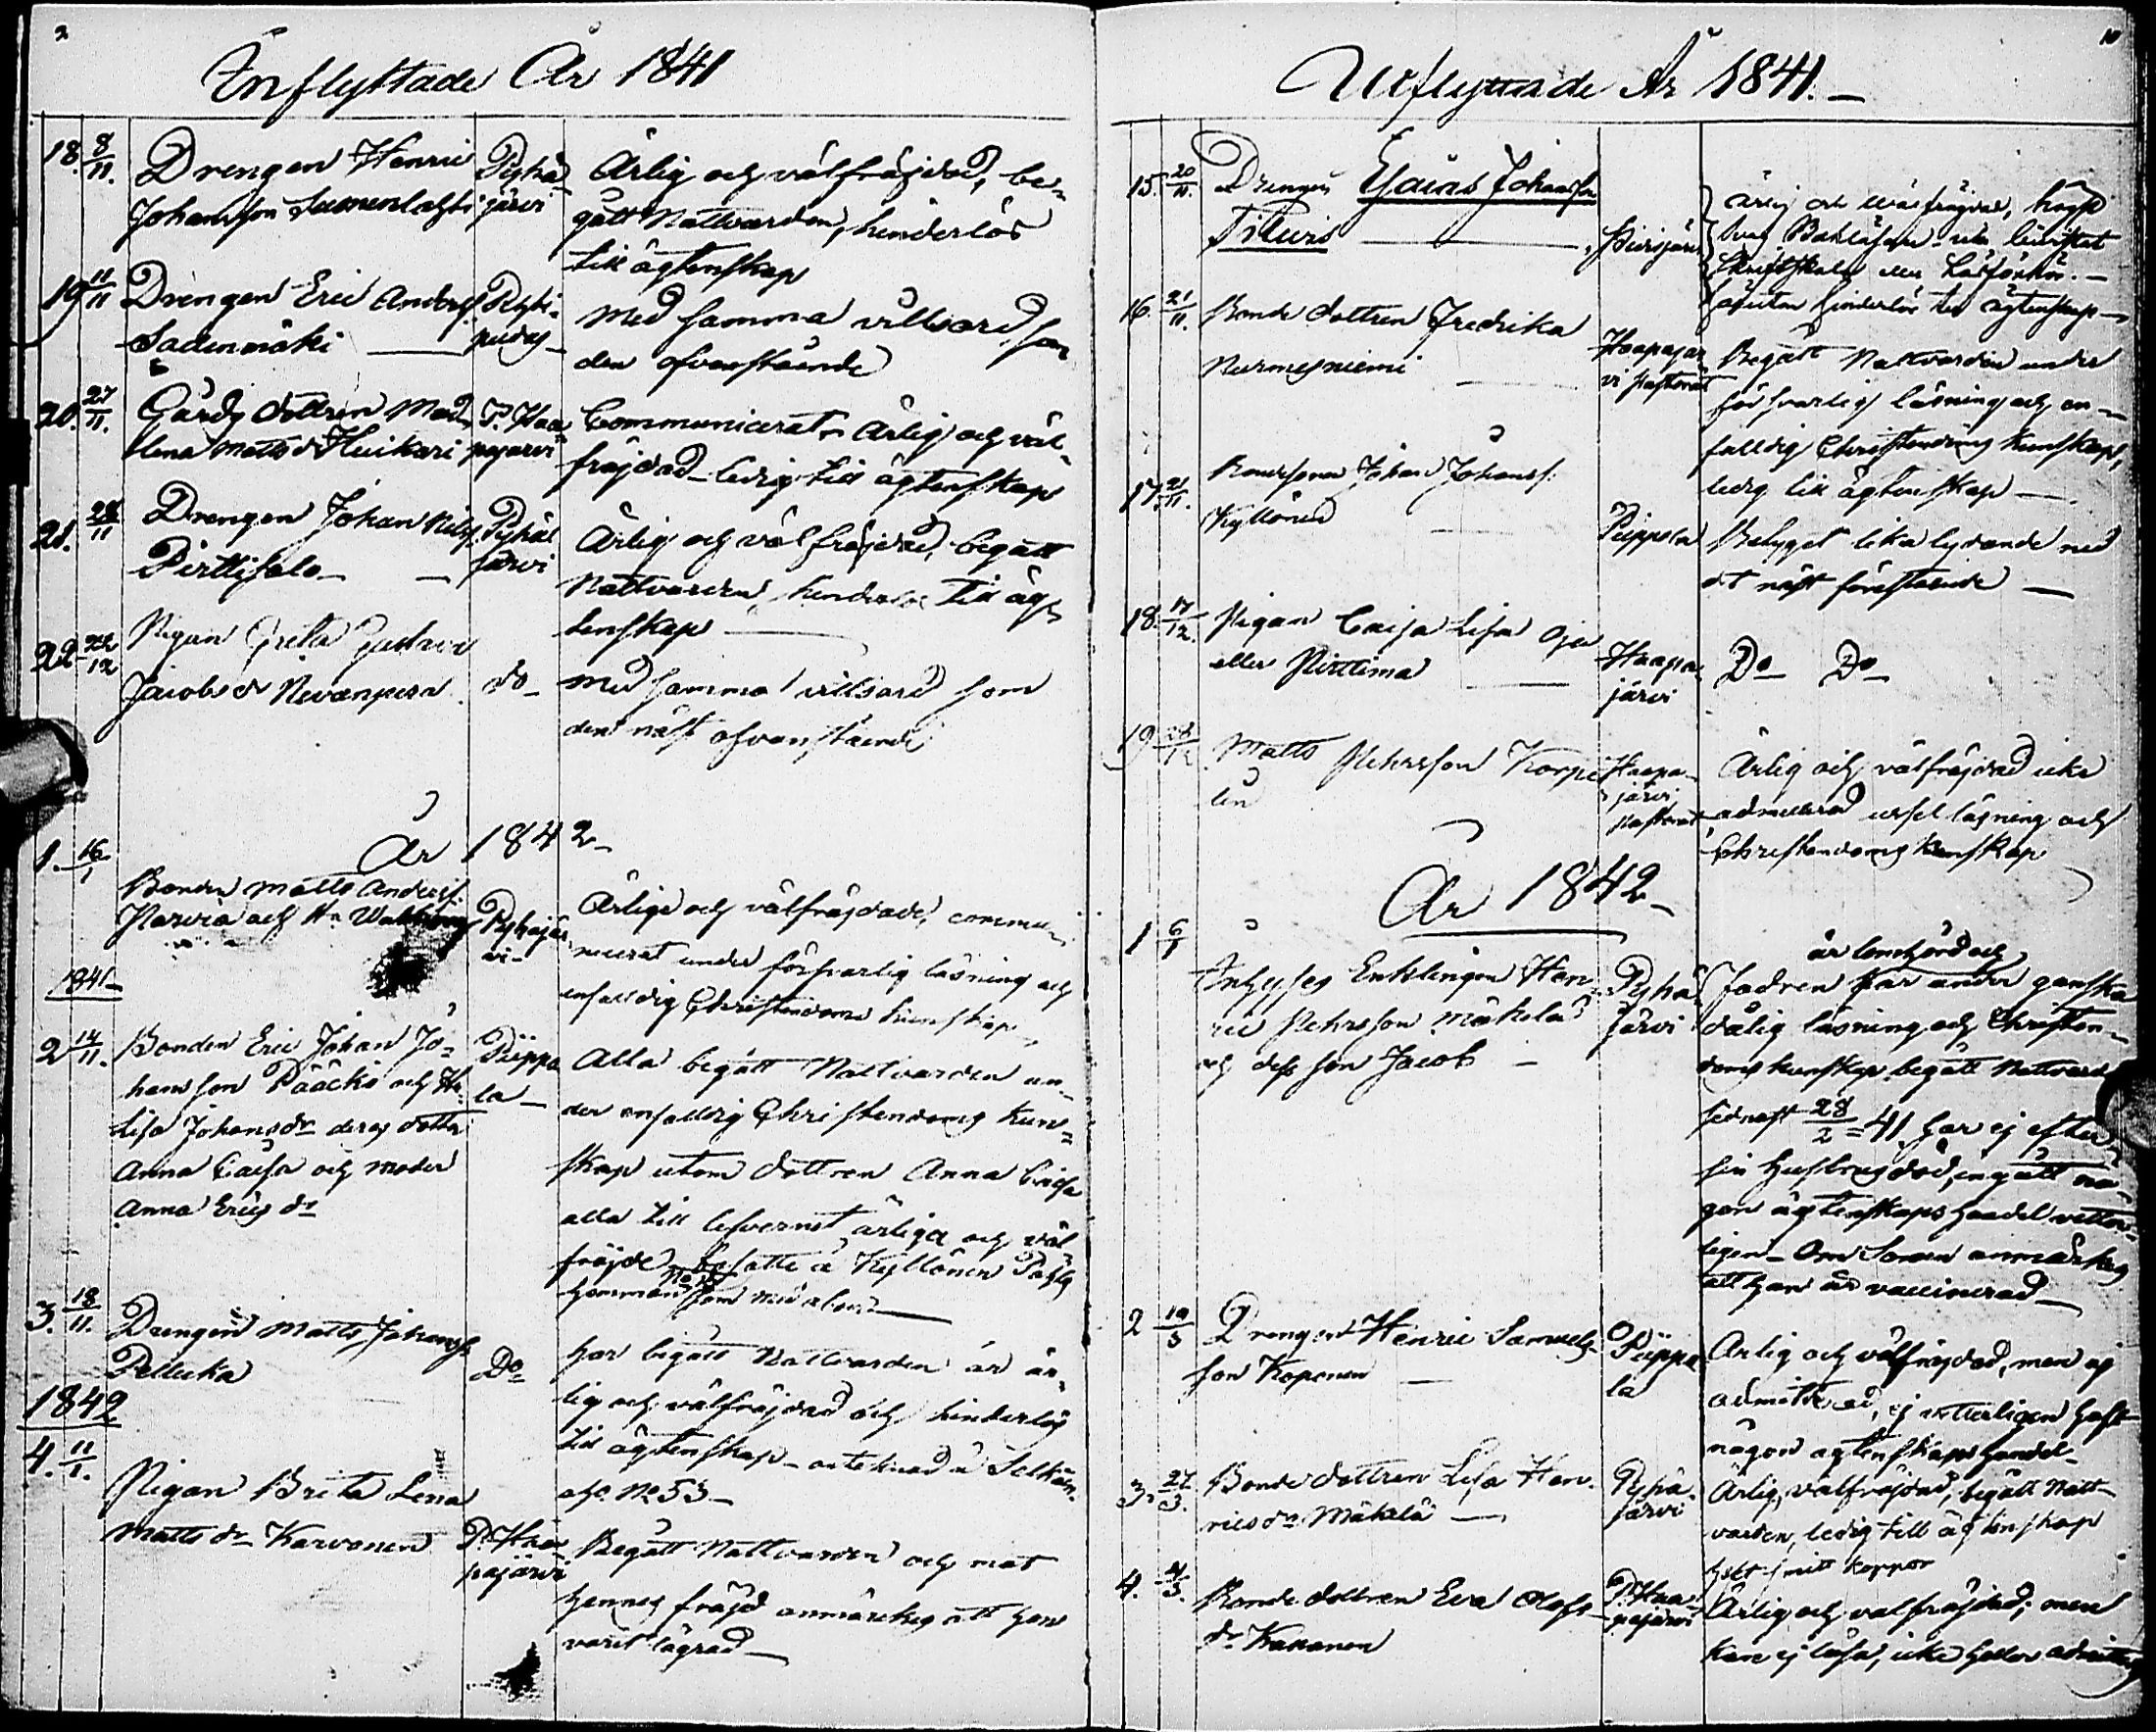 2
Inflyttade År 1841
18. 8/11. Drengen Henric Pyhä
Johansson järvi
Ärlig och välfräjdad, be-
gått Nattvarden, hinderlös
till ägtenskap
19 11/11 Drengen Eric Anders
Med samma vittsord som
den ofvanstående
20. 27/11. Gårds dottren Mad- P. Haa
lena Matts dr Huikari pajärvi
Communicerat, Ärlig och väl-
fräjdad ledig till ägtenskap
21. 28/11 Drengen Johan Nils Pyhä
Pirttisalo järvi
Ärlig och välfräjdad, begått
Nattvarden, hinderlös till äg-
tenskap
22 22/12 Pigan Greta Gustava
Jacobs dr Nevanpera do
Med samma vittsord som
den näst ofvanstående
År 1842
1. 16/1 Bonden Matts Anders
och Hu Pyhäjär
vi
Ärliga och välfräjdade, commu-
nicerat under försvarlig läsning och
enfalldig Christendoms kunskap
1841
2 14/11. Bonden Eric Johan Jo- Piippo
hansson Pääcko och Hu la
Lisa Johans dr deras dotter
Anna Caisa och moder
Anna Erics dr
Alla begått Nattvarden un-
der enfalldig Christendoms kun-
skap utom dottren Anna Caisa
alla till lefvernet ärliga och väl
fräjde
hemman
3. 18/11. Drengen Matts Johanss
Do
har begått Nattvarden är är-
lig och välfräjdad och hinderlös
till ägtenskap
No 53
1842
4. 11/1. Pigan Brita Lena
Matts dr Karvonen P. Haa
pajärvi
Begått Nattvarden och mot
hennes fräjd anmärckes att hon
varit lägrad
10
Utflyttade År 1841.
15. 20/11. Drengen Johansson
ärlig och
hinderlös till ägtenskap
16. 21/11. Bonde dottren Fredrika
Nurmesniemi Haapajär
vi Pastorat
Begått Nattvarden under
försvarlig läsning och en-
falldig Christendoms kunskap,
ledig till ägtenskap
17. 21/11. Bondesonen Johan Johanss.
Kyllönen Piippola
Betyget lika lydande med
det näst förestående
18. 17/12. Pigan Caisa Lisa Oja
eller Pirttimaa Haapa
järvi
Do Do
19 Matts Pehrsson Korpe Haapa-
lin järvi
Pastorat
Ärlig och välfräjdad icke
admitterad usel läsning och
Christendoms kunskap
År 1842
1 6/1 Inhyses Enklingen Hen- Pyhä
ric Pehrsson Mäkelä järvi
och dess son Jacob
är lomhörd och
Fadren har under ganska
dålig läsning och Christen-
doms kunskap begått Nattvard
sednast 28/2 = 41 har ej efter
sin hustrus död, ingått nå-
gon ägtenskaps handel vetter-
ligen Om Sonen anmärkes
att han är vaccinerad
2 Drengen Henric Samuels- Piippo
son Koponen la
Ärlig och välfräjdad, men ej
admitterad, ej vetterligen haft
någon ägtenskaps handel
3. 27/3. Bonde dottren Lisa Hen- Pyhä-
rics dr Mäkelä järvi
Ärlig, välfräjdad, begått Natt-
varden, ledig till ägtenskap
haft koppor
4. Bonde dottren Eva Olofs P. Haa
dr Kananen pajärvi
Ärlig och välfräjdad; men
kan ej läsa, icke heller